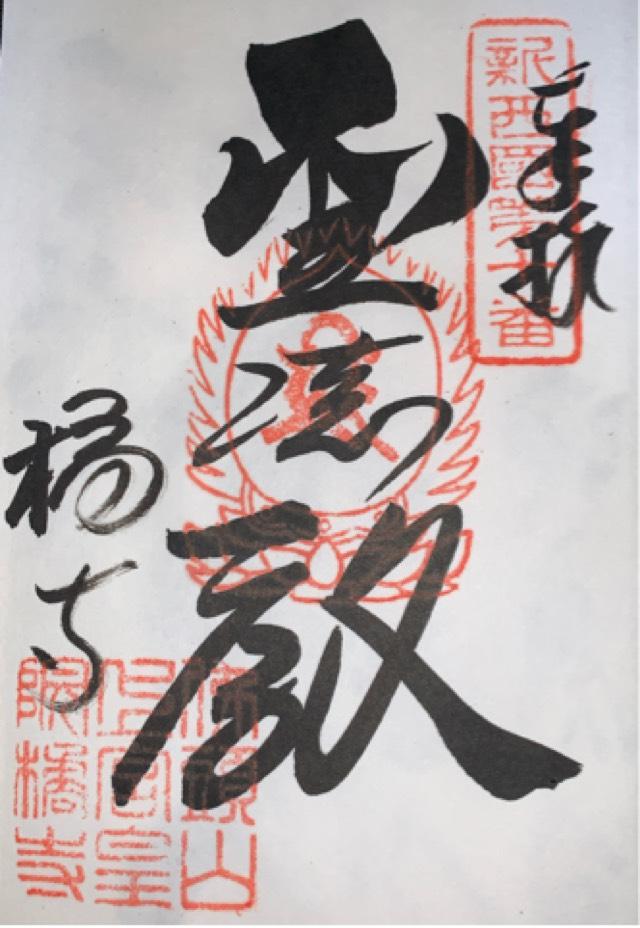 奉拝
新西國第十番
聖徳殿
橘寺
佛頭山
上宮皇
院橘寺